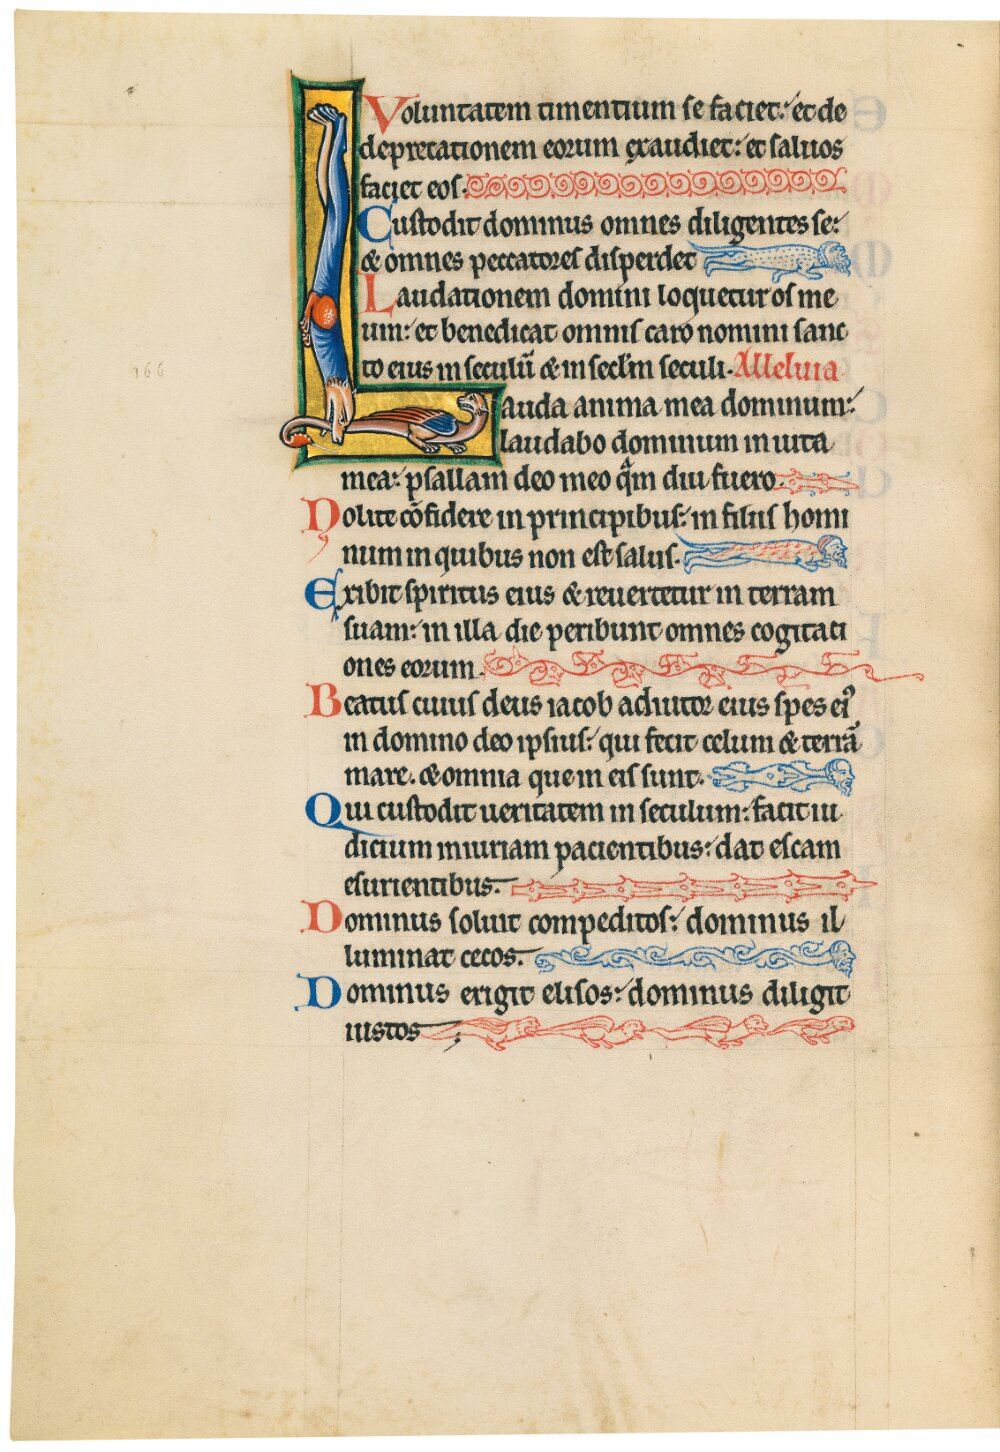 Voluntatem timentium se faciet: et de
depretationem eorum exaudiet: et saluos
faciet eos.
Custodit dominus omnes diligentes se:
& omnes peccatores disperdet
Laudationem domini loquetur os me
um: et benedicat omnis caro nomini sanc
to eius in seculū & in secl'm seculi. Alleluia
166
Lauda anima mea dominum:
laudabo dominum in uita
mea: psallam deo meo qm̄ diu fuero.
Nolite cōfidere in principibus: in filiis homi
num in quibus non est salus.
Exibit spiritus eius & reuertetur in terram
suam: in illa die peribunt omnes cogitati
ones eorum.
Beatus cuius deus iacob adiutor eius spes ei⁹
in domino deo ipsius: qui fecit celum & terrā
mare. & omnia que in eis sunt.
Qui custodit ueritatem in seculum: facit iu
dicium iniuriam pacientibus: dat escam
esurientibus.
Dominus soluit compeditos: dominus il
luminat cecos.
Dominus erigit elisos: dominus diligit
iustos